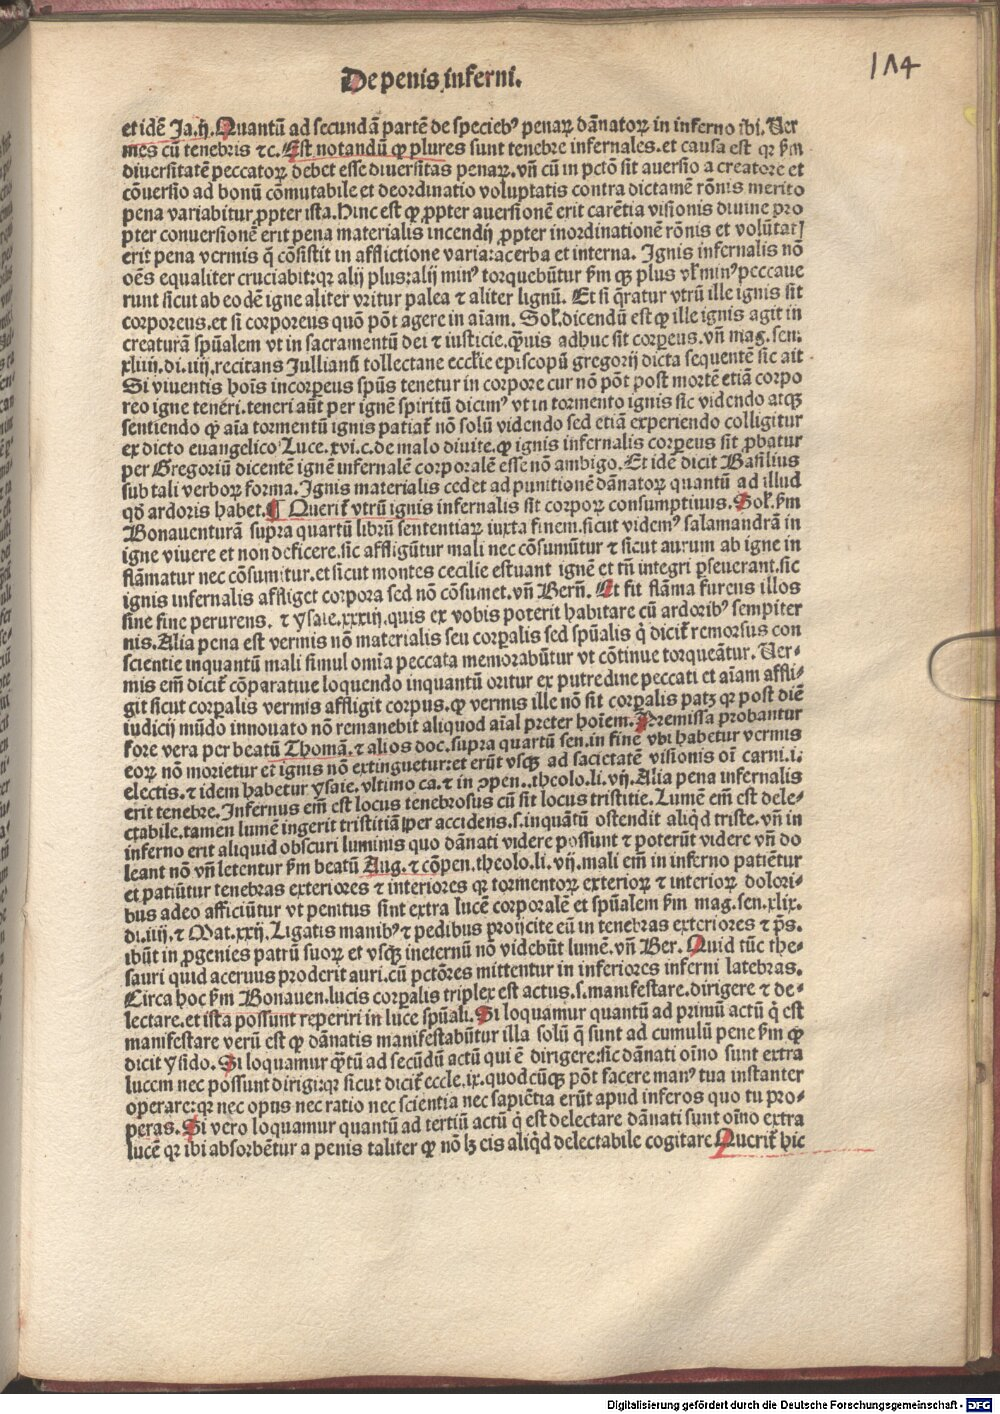 De penis inferni.
114
et idē Ja.ij. Quantū ad secundā partē de specieb⁹ penaꝝ dānatoꝝ in inferno ibi. Ver
mes cū tenebris ⁊c. Est notandū ꝙ plures sunt tenebre infernales. et causa est qꝛ ẜm
diuersitatē peccatoꝝ debet esse diuersitas penaꝝ. vñ cū in pctō sit auersio a creatore et
cōuersio ad bonū cōmutabile et deordinatio voluptatis contra dictamē rōnis merito
pena variabitur ꝓpter ista. Hinc est ꝙ ꝓpter auersionē erit carētia visionis diuine pro
pter conuersionē erit pena materialis incendij ꝓpter inordinationē rōnis et volūtatꝭ
erit pena vermis q̄ cōsistit in afflictione varia: acerba et interna. Ignis infernalis nō
oēs equaliter cruciabit: qꝛ alij plus: alij min⁹ torquebūtur ẜm qꝫ plus vl̓ min⁹ peccaue
runt sicut ab eodē igne aliter vritur palea ⁊ aliter lignū. Et si q̄ratur vtrū ille ignis sit
corporeus. et si corporeus quō pōt agere in aīam. Sol̓. dicendū est ꝙ ille ignis agit in
creaturā spūalem vt in sacramentū dei ⁊ iusticie. q̄uis adhuc sit corꝑeus. vñ mag. sen.
xliiij. di. iiij. recitans Jullianū tollectane eccl̓ie episcopū gregorij dicta sequentē sic ait
Si viuentis hoīs incorꝑeus spūs tenetur in corpore cur nō pōt post mortē etiā corpo
reo igne teneri. teneri aūt per ignē spiritū dicim⁹ vt in tormento ignis sic videndo atqꝫ
sentiendo qꝛ aīa tormentū ignis patiat̓ nō solū videndo sed etiā experiendo colligitur
ex dicto euangelico Luce. xvi. c. de malo diuite. ꝙ ignis infernalis corꝑeus sit ꝓbatur
per Gregoriū dicentē ignē infernalē corporalē esse nō ambigo. Et idē dicit Basilius
sub tali verboꝝ forma. Ignis materialis cedet ad punitionē dānatoꝝ quantū ad illud
qđ ardoris habet. ¶ Querit̓ vtrū ignis infernalis sit corpoꝝ consumptiuus. Sol̓. ẜm
Bonauenturā supra quartū librū sententiaꝝ iuxta finem. sicut videm⁹ salamandrā in
igne viuere et non deficere. sic affligūtur mali nec cōsumūtur ⁊ sicut aurum ab igne in
flāmatur nec cōsumitur. et sicut montes cecilie estuant ignē et tñ integri ꝑseuerant. sic
ignis infernalis affliget corpora sed nō cōsumet. vñ Berñ. At fit flāma furens illos
sine fine perurens. ⁊ ysaie. xxxiij. quis ex vobis poterit habitare cū ardorib⁹ sempiter
nis. Alia pena est vermis nō materialis seu corꝑalis sed spūalis q̓ dicit̓ remorsus con
scientie inquantū mali simul omīa peccata memorabūtur vt cōtinue torqueātur. Ver-
mis em̄ dicit̓ cōparatiue loquendo inquantū oritur ex putredine peccati et aīam affli-
git sicut corꝑalis vermis affligit corpus. ꝙ vermis ille nō sit corꝑalis patꝫ qꝛ post diē
iudicij mūdo innouato nō remanebit aliquod aīal preter hoīem. Premissa probantur
fore vera per beatū Thomā. ⁊ alios doc. supra quartū sen. in fine vbi habetur vermis
eoꝝ nō morietur et ignis nō extinguetur: et erūt vsqꝫ ad sacietatē visionis oī carni. i.
electis. ⁊ idem habetur ysaie. vltimo ca. ⁊ in ꝯpen.. theolo. li. vij. Alia pena infernalis
erit tenebre. Infernus em̄ est locus tenebrosus cū sit locus tristitie. Lumē em̄ est dele-
ctabile. tamen lumē ingerit tristitiā per accidens. s. inquātū ostendit aliqd̓ triste. vñ in
inferno erit aliquid obscuri luminis quo dānati videre possunt ⁊ poterūt videre vñ do
leant nō vñ letentur ẜm beatū Aug. ⁊ cōpen. theolo. li. vij. mali em̄ in inferno patiētur
et patiūtur tenebras exteriores ⁊ interiores qꝛ tormentoꝝ exterioꝝ ⁊ interioꝝ dolori-
bus adeo afficiūtur vt penitus sint extra lucē corporalē et spūalem ẜm mag. sen. xlix.
di. iiij. ⁊ Mat. xxij. Ligatis manib⁹ ⁊ pedibus proijcite eū in tenebras exteriores ⁊ p̄s.
ibūt in ꝓgenies patrū suoꝝ et vsqꝫ ineternū nō videbūt lumē. vñ Ber. Quid tūc the-
sauri quid aceruus proderit auri. cū pctōres mittentur in inferiores inferni latebras.
Circa hoc ẜm Bonauen. lucis corꝑalis triplex est actus. s. manifestare. dirigere ⁊ de-
lectare. et ista possunt reperiri in luce spūali. Si loquamur quantū ad primū actū q̓ est
manifestare verū est ꝙ dānatis manifestabūtur illa solū q̄ sunt ad cumulū pene ẜm ꝙ
dicit ysido. Si loquamur q̄tū ad secūdū actū qui ē dirigere: sic dānati oīno sunt extra
lucem nec possunt dirigi: qꝛ sicut dicit̓ eccle. ix. quodcūqꝫ pōt facere man⁹ tua instanter
operare: qꝛ nec opus nec ratio nec scientia nec sapiētia erūt apud inferos quo tu pro-
peras. Si vero loquamur quantū ad tertiū actū q̓ est delectare dānati sunt oīno extra
lucē qꝛ ibi absorbētur a penis taliter ꝙ nō lꝫ eis aliqd̓ delectabile cogitare Querit̓ hic
Digitalisierung gefördert durch die Deutsche Forschungsgemeinschaft - DFG